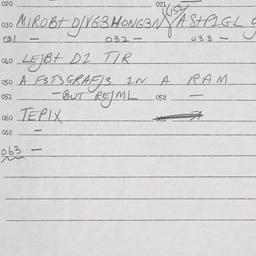 020 021 (15)
030 MIROBt D/VG3HONG3N YAStPIGL
031 - 032 - 033 -
040 LEJBt D2 TIR
050 A F3T3GRAFJ3 IN A RAM
051 - BUT REJML 052 -
060 TEPIX
062 -
063 -